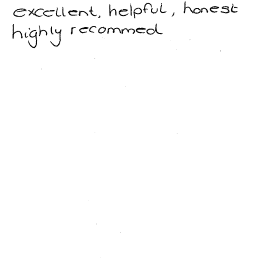 excellent, helpful, honest
highly recommed